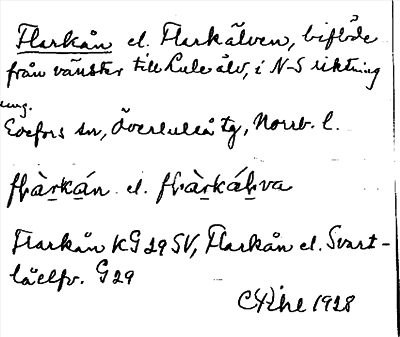 Flarkån el. Flarkälven, biflöde
från vänster till Lule älv, i N-S riktning
ung.
Edefors sn, Överluleå tg, Norrb. l.
flàrkán el. flàrkáḷva
Flarkån KG 29 SV, Flarkån el. Svart-
låelfv. G 29
1928